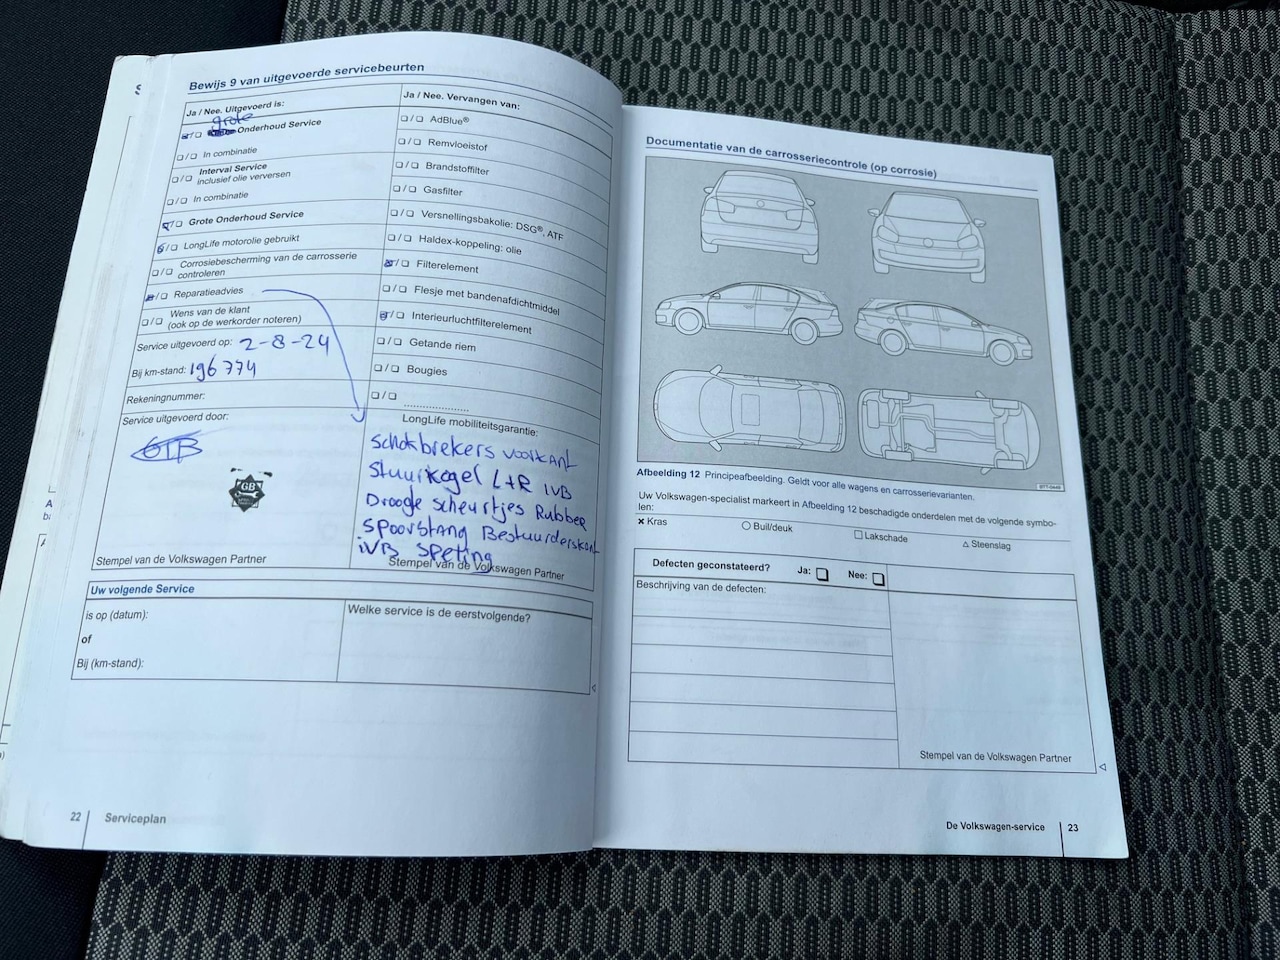 Bewijs 9 van uitgevoerde servicebeurten
Ja / Nee. Uitgevoerd is:
grote
Onderhoud Service
In combinatie
Interval Service
inclusief olie verversen
In combinatie
Grote Onderhoud Service
LongLife motorolie gebruikt
Corrosiebescherming van de carrosserie
controleren
Reparatieadvies
Wens van de klant
(ook op de werkorder noteren)
Service uitgevoerd op: 2-8-24
Bij km-stand: 196774
Rekeningnummer:
Service uitgevoerd door:
GB
Stempel van de Volkswagen Partner
Ja / Nee. Vervangen van:
AdBlue®
Remvloeistof
Brandstoffilter
Gasfilter
Versnellingsbakolie: DSG®, ATF
Haldex-koppeling: olie
Filterelement
Flesje met bandenafdichtmiddel
Interieurluchtfilterelement
Getande riem
Bougies
LongLife mobiliteitsgarantie:
Schokbrekers voorkant
Stuurkogel L+R IVB
Droogte scheurtjes Rubber
Spoorstang Bestuurderskant
iVB Speling
Stempel van de Volkswagen Partner
Uw volgende Service
is op (datum):
of
Bij (km-stand):
Welke service is de eerstvolgende?
22 Serviceplan
Documentatie van de carrosseriecontrole (op corrosie)
Afbeelding 12 Principeafbeelding. Geldt voor alle wagens en carrosserievarianten.
Uw Volkswagen-specialist markeert in Afbeelding 12 beschadigde onderdelen met de volgende symbo-
len:
Kras
Buil/deuk
Lakschade
Steenslag
Defecten geconstateerd? Ja: Nee:
Beschrijving van de defecten:
Stempel van de Volkswagen Partner
De Volkswagen-service 23